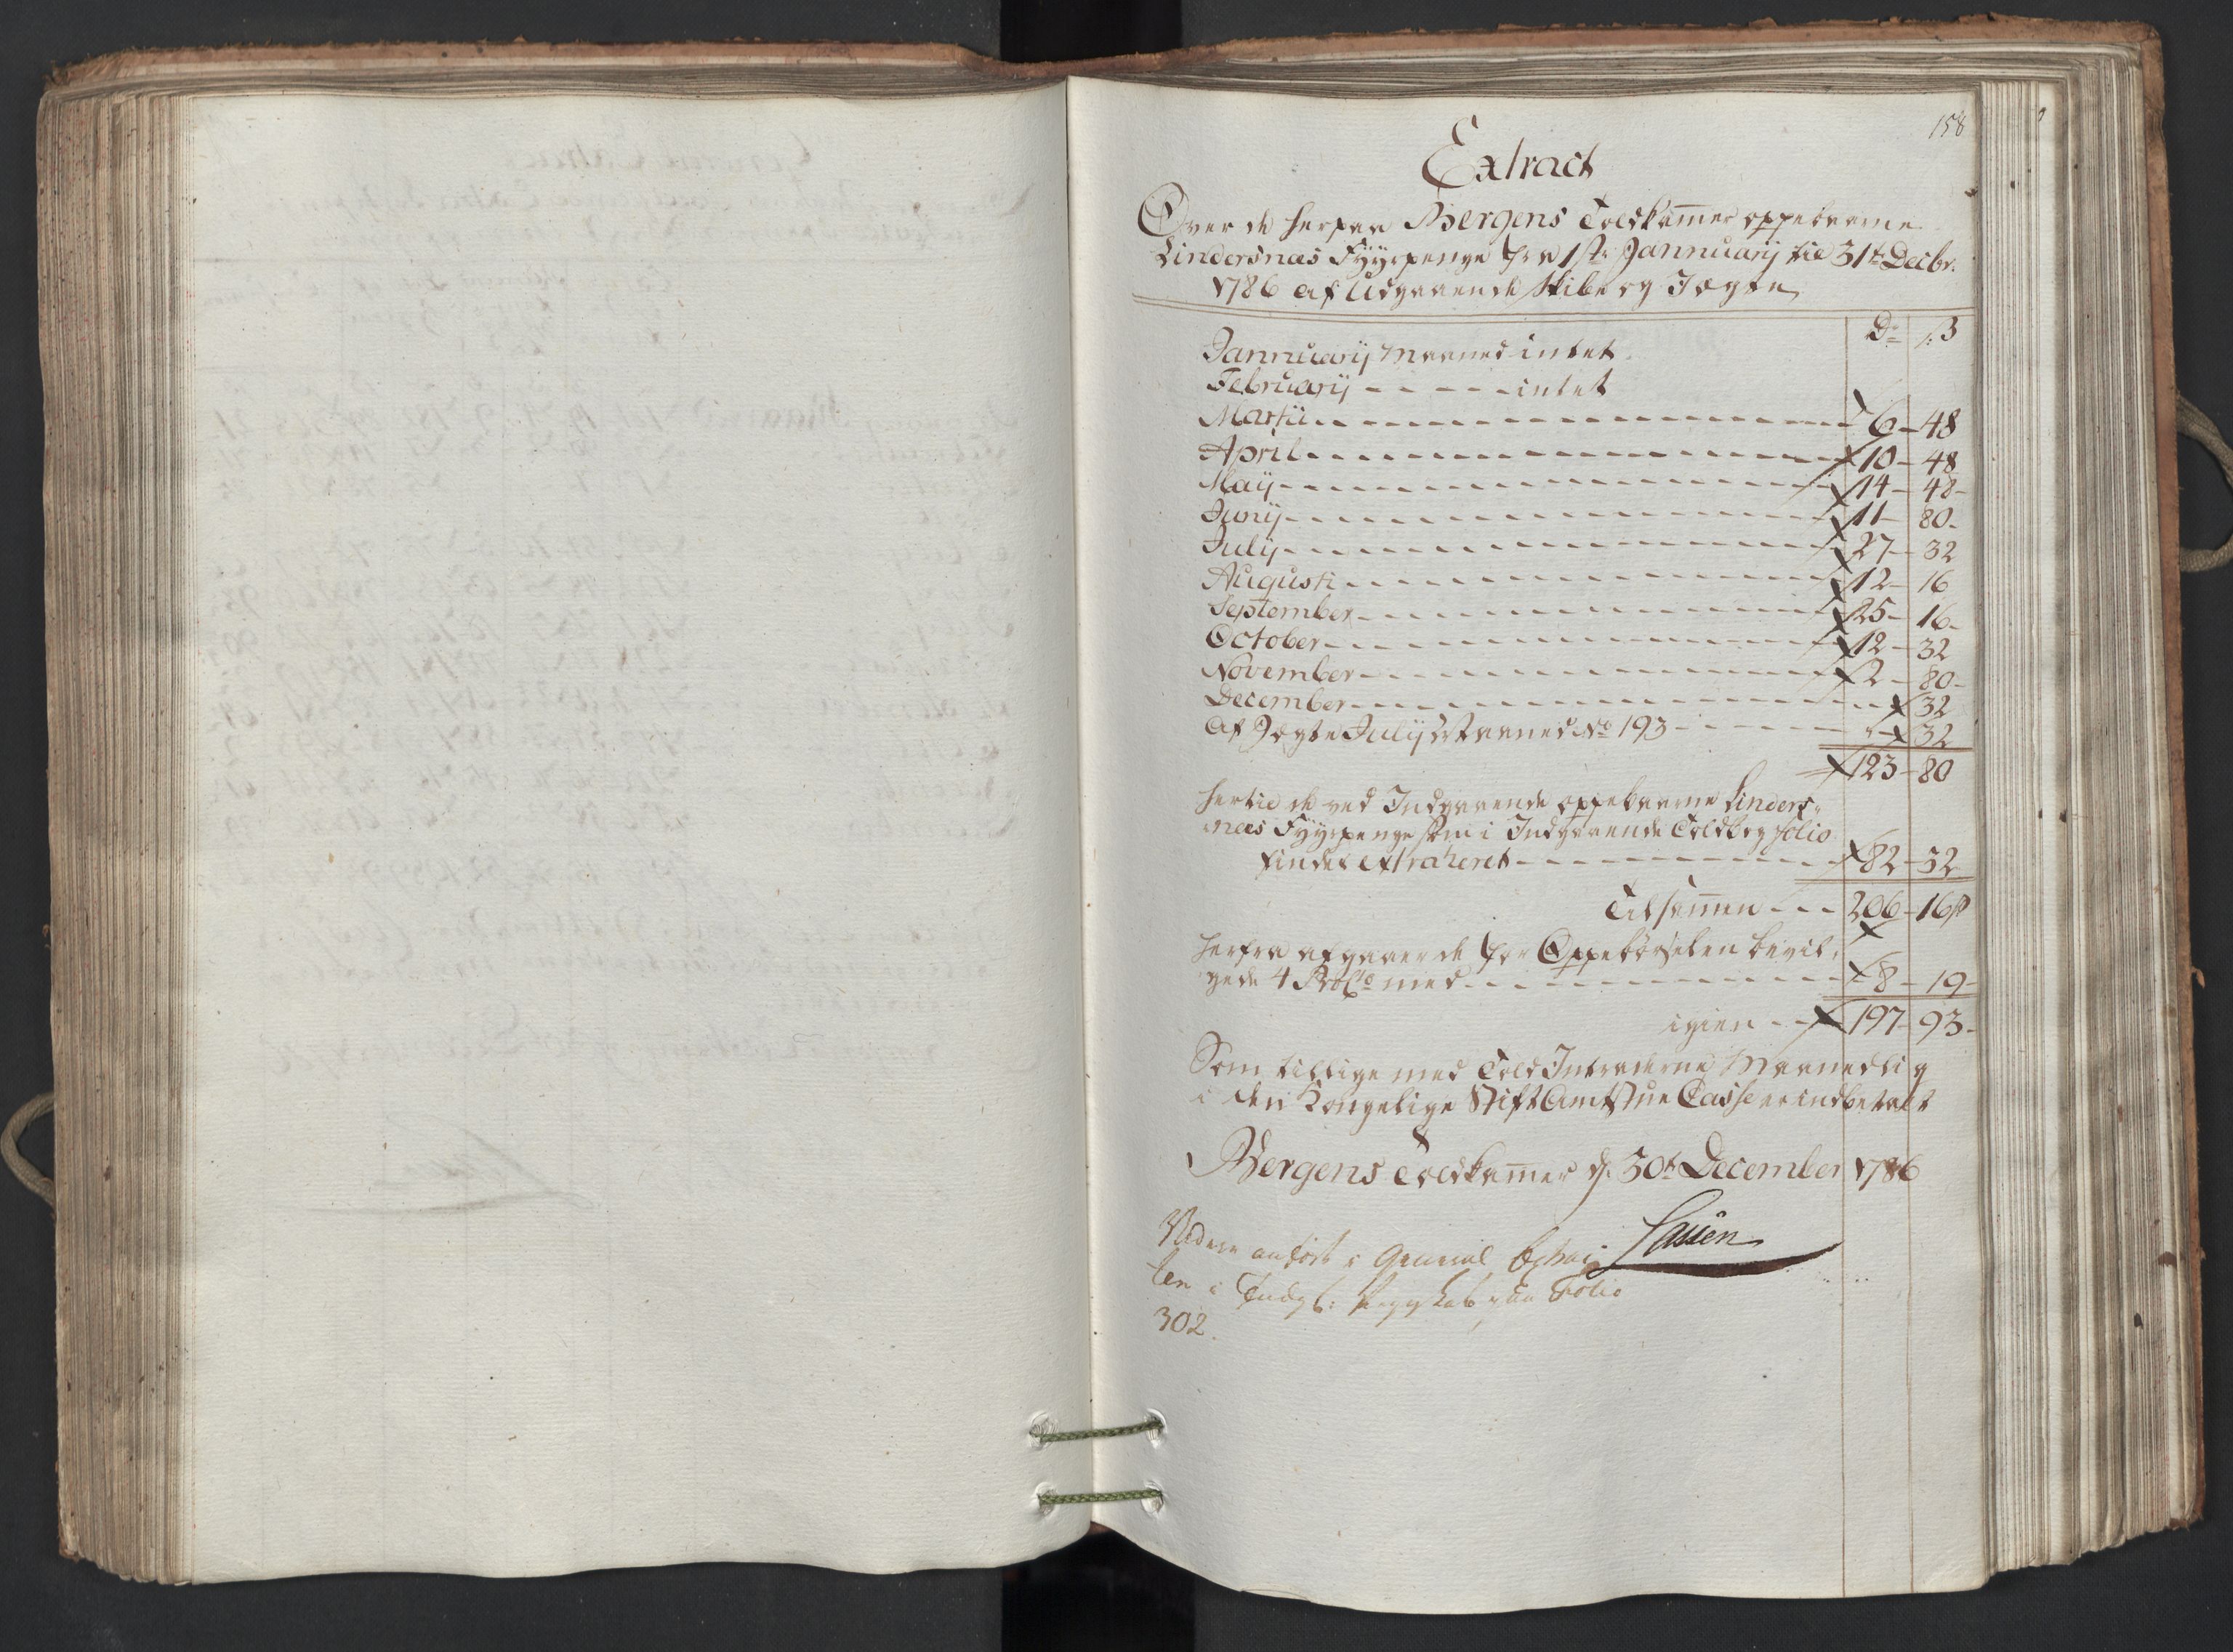 158
Extract
Over de herpaa Bergens Toldkam̅er oppebaarne
Lindersnæs Fyyrpenge fra 1ste Jannuarij til 31te Decbr.
1786 af Udgaaende Skibe og Jægte
D: ß
Jannuarij Maaned intet.
February - - - - - intet
Martii - - - 6 - 48
April - - - 10 - 48
Maij - - - 14 - 48 -
Junij - - - 11 - 80 -
Julij - - - 27 - 32
Augusti - - - 12 - 16
September - - - 25 - 16 -
October - - - 12 - 32
November - - - 2 - 80 -
December - - - 32
Af Jægte Julij Maaned No 193 - - - 32
123 - 80
hertil de ved Indgaaende oppebaarne Linders-
næs Fyyrpenge som i Indgaaende Toldbog folio
findes extraheret - - - 82 - 32
Tilsam̅en - - - 206 - 16 ß
herfra afgaaer de for Oppebørselen bevil-
gede 4 ProCto med - - - 8 - 19 -
igien - - 197 - 93 -
Som tillige med Told Intraderne Maanedlig
i den Kongelige Stift Amtstue Casse er indbetalt
Bergens Toldkam̅er d. 30te December 1786
Lassen
Videre anført i General Extrac-
ten i Indg: Regnskab paa Folio
302.